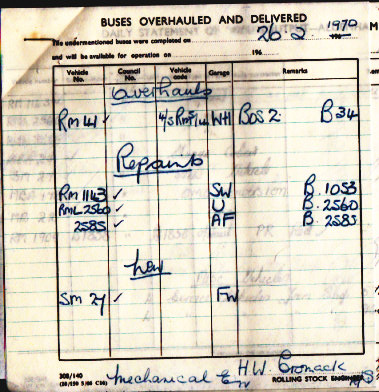 BUSES OVERHAULED AND DELIVERED
The undermentioned buses were completed on 26·2 1970
and will be available for operation on 196
Vehicle No. Council No. Vehicle code Garage Remarks
Overhauls
RM 41 ✓ WH BOS 2. B 34
Repaints
RM 1143 ✓ SW B. 1053
RML 2560 ✓ U B. 2560
2585 ✓ AF B. 2585
New
SM 27 ✓ FW
308/140
Mechanical HW Cronack
ROLLING STOCK ENGINEER